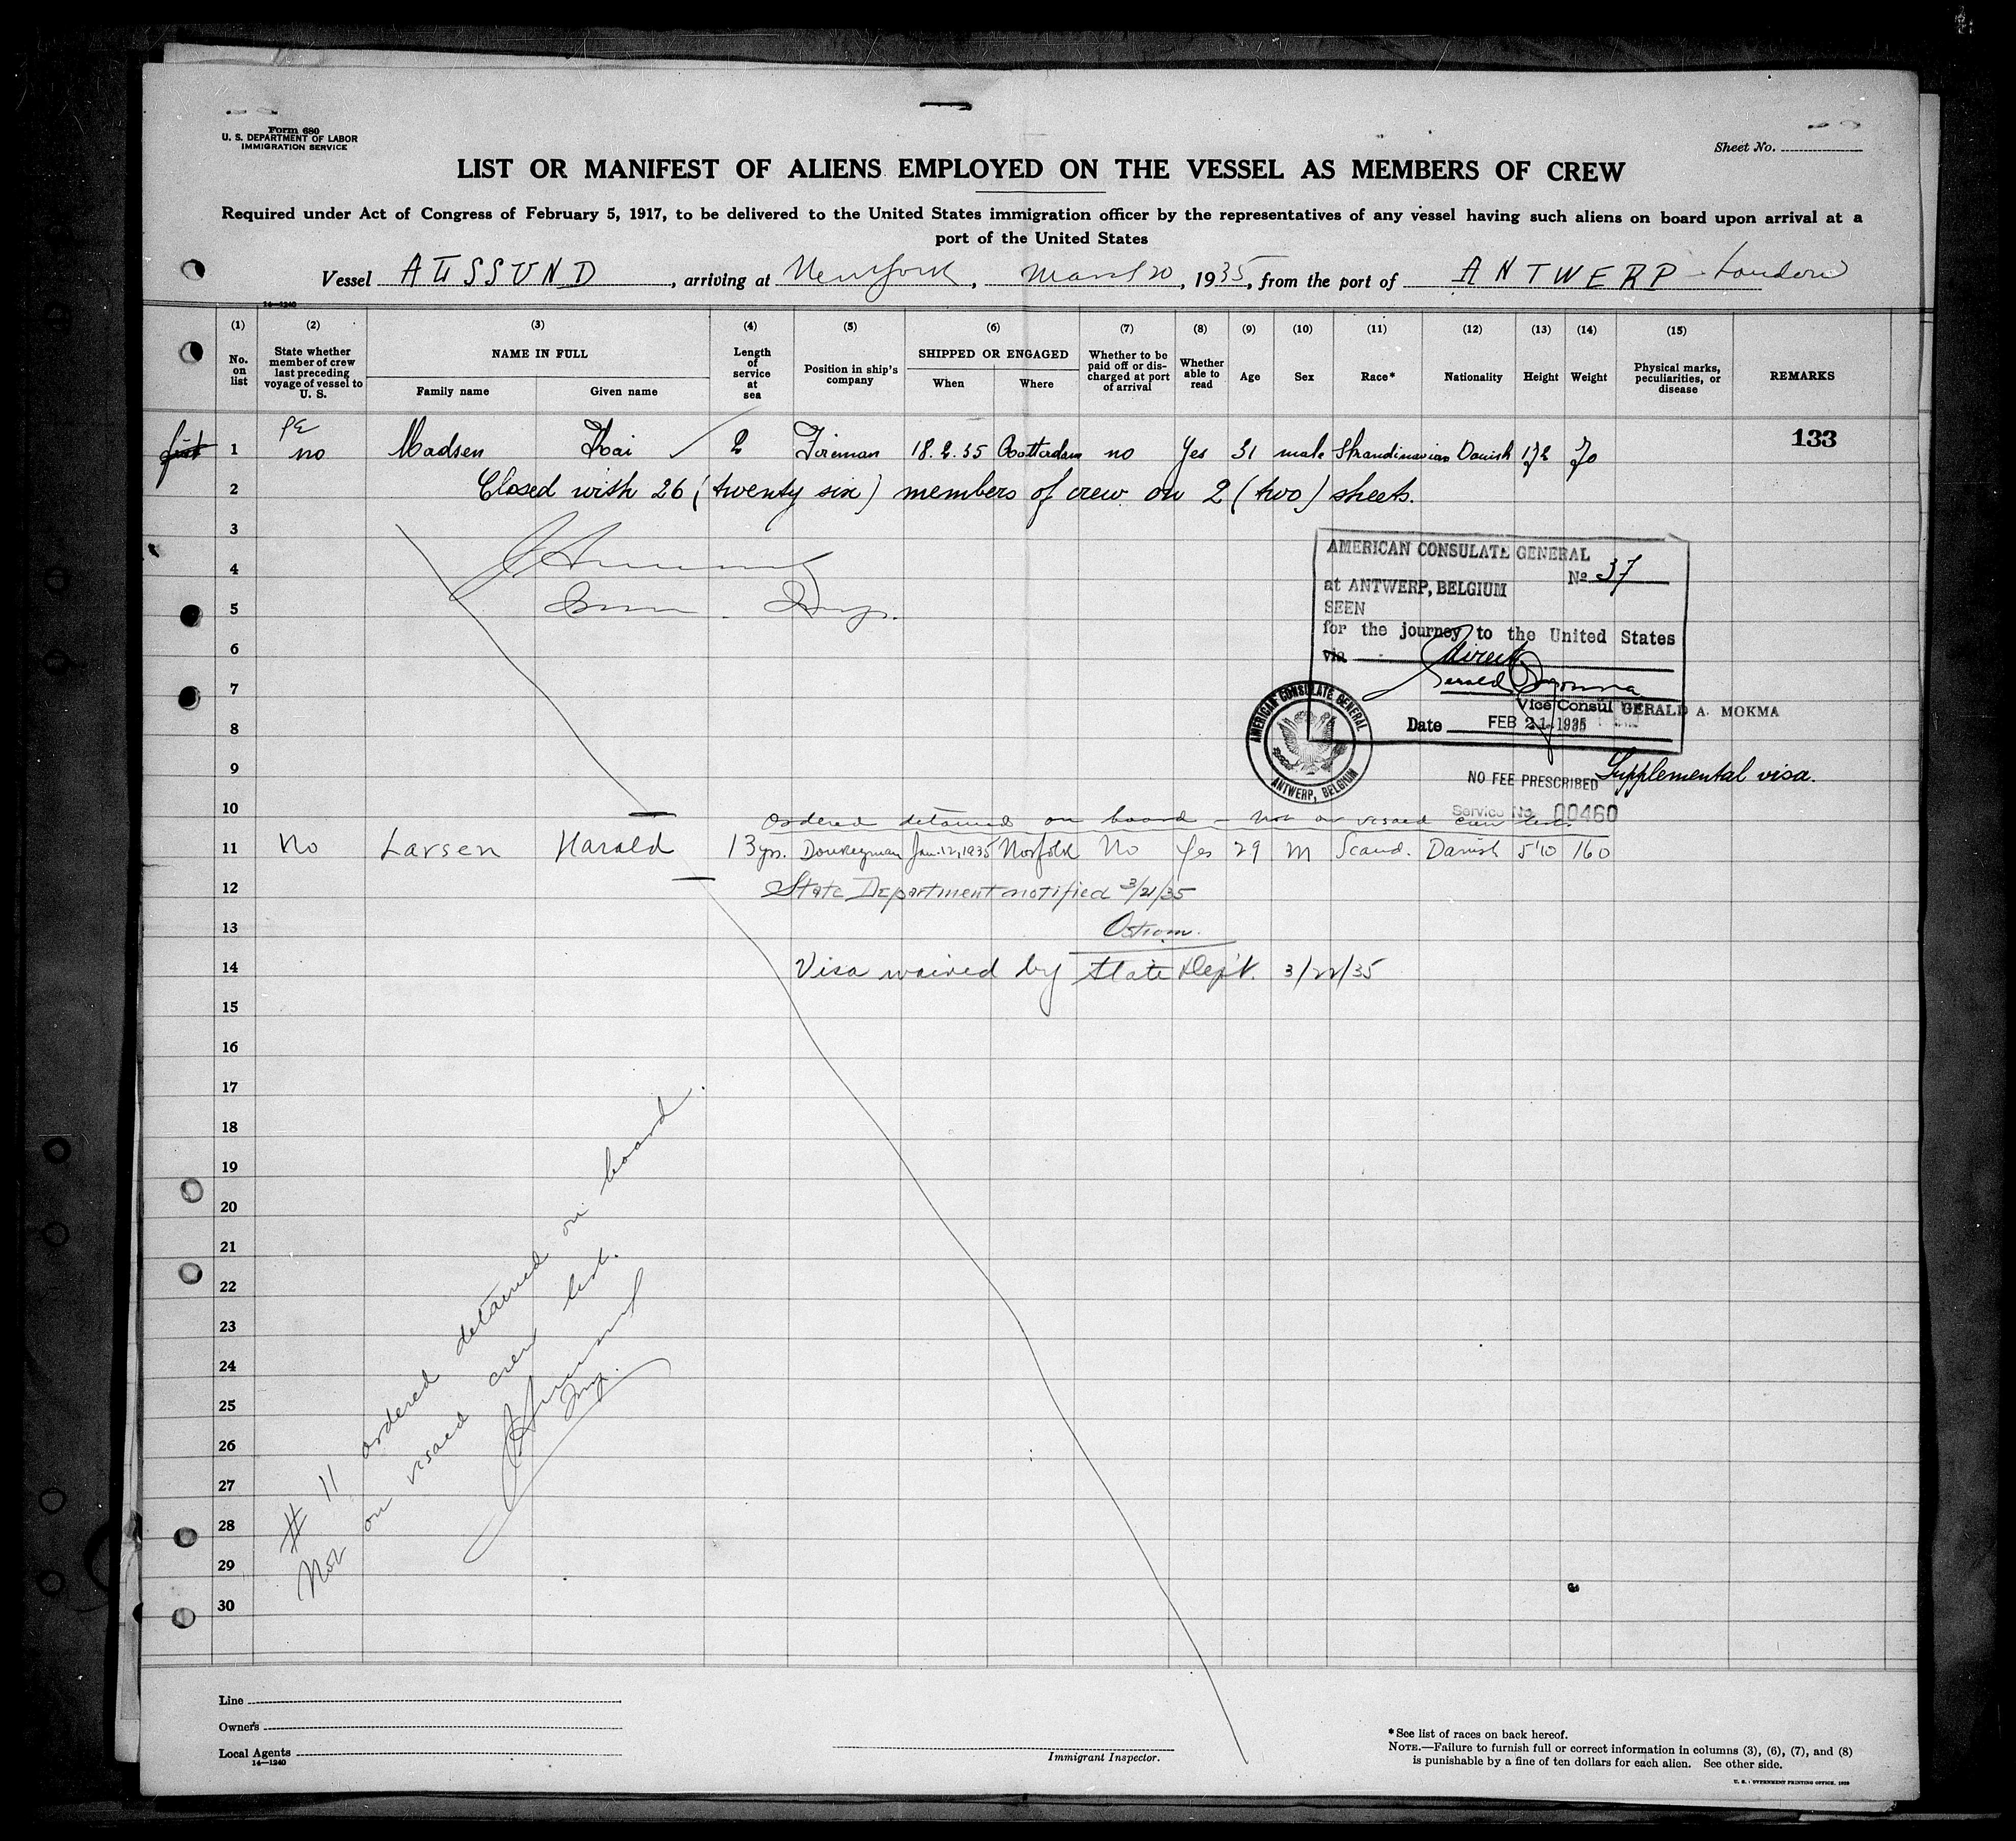 Form 680
U. S. DEPARTMENT OF LABOR
IMMIGRATION SERVICE
Sheet No.
LIST OR MANIFEST OF ALIENS EMPLOYED ON THE VESSEL AS MEMBERS OF CREW
Required under Act of Congress of February 5, 1917, to be delivered to the United States immigration officer by the representatives of any vessel having such aliens on board upon arrival at a
port of the United States
Vessel , arriving at New York , March 20 , 1935, from the port of ANTWERP - London
14—1240
(1) (2) (3) (4) (5) (6) (7) (8) (9) (10) (11) (12) (13) (14) (15)
No. on list
State whether member of crew last preceding voyage of vessel to U. S.
NAME IN FULL
Family name
Given name
Length of service at sea
Position in ship's company
SHIPPED OR ENGAGED
When
Where
Whether to be paid off or discharged at port of arrival
Whether able to read
Age
Sex
Race*
Nationality
Height
Weight
Physical marks, peculiarities, or disease
REMARKS
133
1 no Madsen Kai 2 Fireman 18.2.35 Rotterdam no Yes 31 male Skandinavian Danish 172 70
2 Closed with 26 (twenty six) members of crew on 2 (two) sheets.
3
4
5
6
7
8
9
10
AMERICAN CONSULATE GENERAL
No 37
at ANTWERP, BELGIUM
SEEN
for the journey to the United States
via direct
Vice Consul GERALD A. MOKMA
Date FEB 21 1935
AMERICAN CONSULATE GENERAL
ANTWERP, BELGIUM
NO FEE PRESCRIBED Supplemental visa.
Service No. 00460
Ordered detained on board - Not on visaed crew list.
11 No Larsen Harald 13 yrs. Donkeyman Jan. 12, 1935 Norfolk No Yes 29 M Scand. Danish 5'10 160
12 State Department notified 3/21/35
13 Ostrom.
14 Visa waived by State Dep't. 3/22/35
15
16
17
18
19
20
21
22
23
24
25
26
27
28
29
30
# 11 ordered detained on board.
Not on visaed crew list.
Insp.
Line
Owners
Local Agents
14—1240
Immigrant Inspector.
*See list of races on back hereof.
NOTE.—Failure to furnish full or correct information in columns (3), (6), (7), and (8)
is punishable by a fine of ten dollars for each alien. See other side.
U. S. GOVERNMENT PRINTING OFFICE, 1929